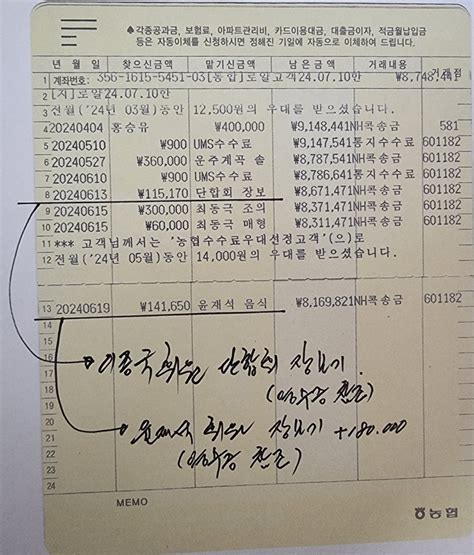 ♠각종공과금, 보험료, 아파트관리비, 카드이용대금, 대출금이자, 적금월납입금
등은 자동이체를 신청하시면 정해진 기일에 자동으로 이체하여 드립니다.
년 월 일 찾으신금액 맡기신금액 남은금액 거래내용 거래점
1 계좌번호: 356-1615-5451-03[통합]로얄고객24.07.10만 ₩8,748,441
2 [지]로얄24.07.10만
3 전월('24년 03월)동안 12,500원의 우대를 받으셨습니다.
4 20240404 홍승유 ₩400,000 ₩9,148,441NH콕송금 581
5 20240510 ₩900 UMS수수료 ₩9,147,541통지수수료 601182
6 20240527 ₩360,000 운주계곡 솔 ₩8,787,541NH콕송금 601182
7 20240610 ₩900 UMS수수료 ₩8,786,641통지수수료 601182
8 20240613 ₩115,170 단합회 장보 ₩8,671,471NH콕송금 601182
9 20240615 ₩300,000 최동극 조의 ₩8,371,471NH콕송금 601182
10 20240615 ₩60,000 최동극 매형 ₩8,311,471NH콕송금 601182
11 *** 고객님께서는 '농협수수료우대선정고객'(으)로
12 전월('24년 05월)동안 14,000원의 우대를 받으셨습니다.
13 20240619 ₩141,650 윤재석 음식 ₩8,169,821NH콕송금 601182
14
15
16 이종국 회원 단합회 장보기.
17
18 (영수증 참조)
19
20
21 윤재석 회원 장보기 +180.000
22 (영수증 참조)
23
24
MEMO
농협